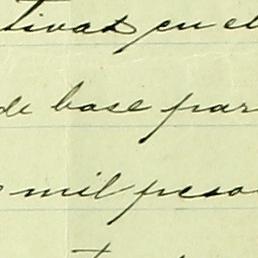 tivas en el
de base par
mil peso